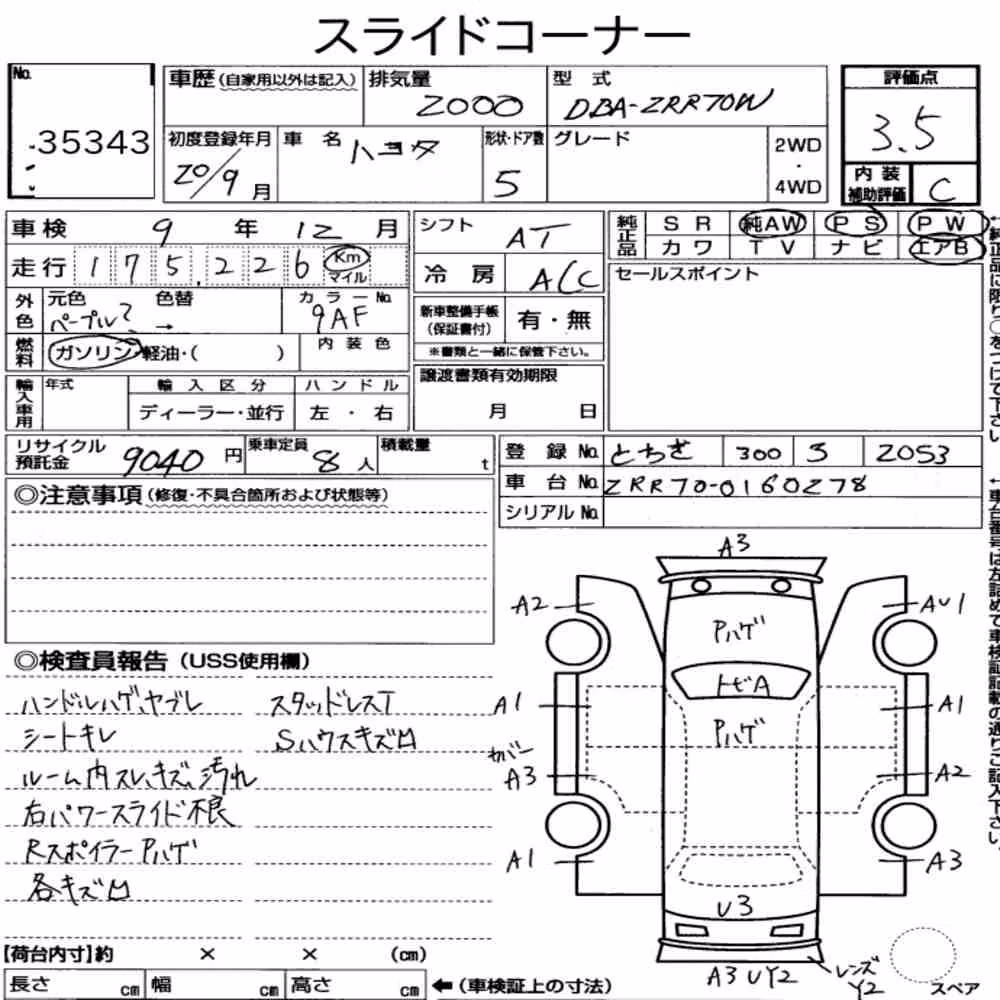 スライドコーナー
No.
35343
車歴(自家用以外は記入)
排気量
2000
型 式
DBA-ZRR70W
評価点
3.5
初度登録年月
20/9月
車 名
トヨタ
形状・ドア数
5
グレード
2WD
・
4WD
内装補助評価
C
車検 9年 12月
走行 175,226 Km マイル
外色
元色
パープル?
色替
→
カラーNo.
9AF
燃料
ガソリン・軽油・( )
内装色
輸入車用
年式
輸入区分
ディーラー・並行
ハンドル
左・右
シフト
AT
冷房
A/C
新車整備手帳
(保証書付)
有・無
※書類と一緒に保管下さい。
譲渡書類有効期限
月 日
純正品
SR 純AW PS PW
カワ TV ナビ エアB
セールスポイント
←純正品に限り○をつけて下さい。
リサイクル預託金
9040円
乗車定員
8人
積載量
t
登録No. とちぎ 300 ス 2053
車台No. ZRR70-0160278
シリアルNo.
←車台番号は左詰めで車検証記載の通りご記入下さい。
◎注意事項(修復・不具合箇所および状態等)
◎検査員報告(USS使用欄)
ハンドルハゲ、ヤブレ
シートキレ
ルーム内スレ、キズ、汚れ
右パワースライド不良
RスポイラーPハゲ
各キズ凹
スタッドレスT
Sハウスキズ凹
A3
A2
AU1
Pハゲ
トビA
A1
A1
Pハゲ
カバー
A3
A2
A1
A3
U3
A3 UY2
レンズ
Y2
スペア
【荷台内寸】約 × × (cm)
長さ cm
幅 cm
高さ cm
←(車検証上の寸法)